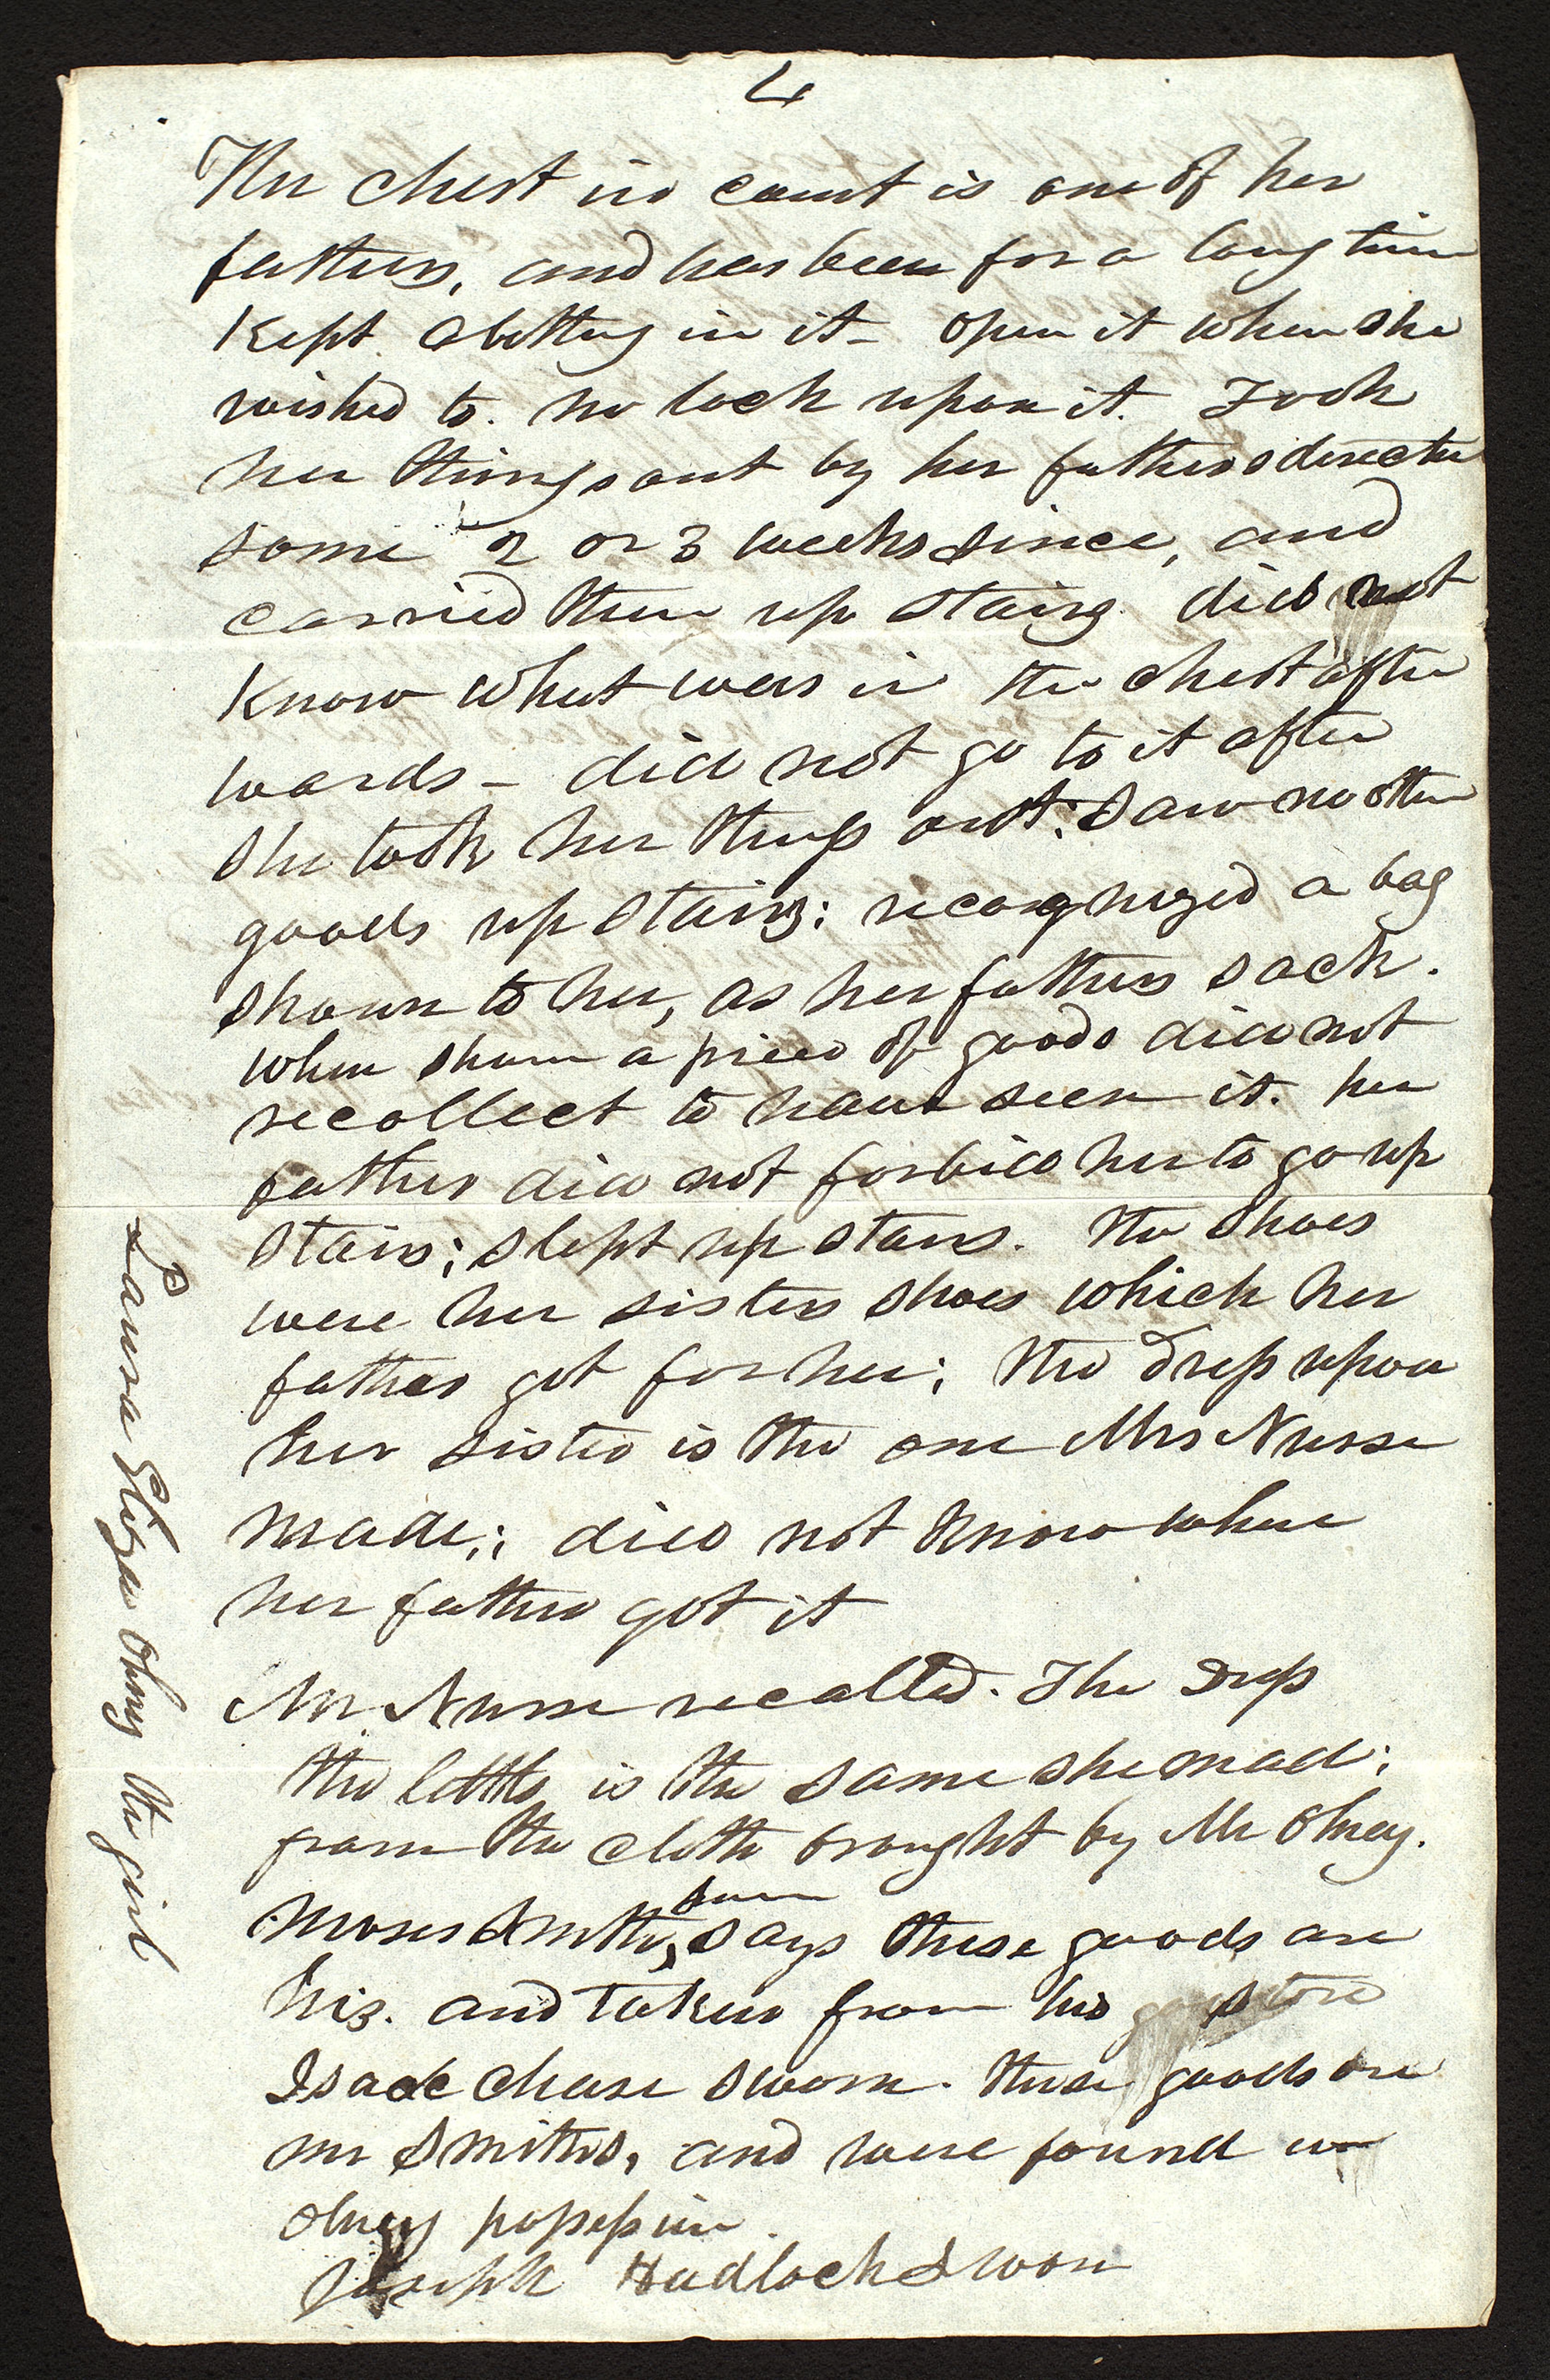 4
The chest in court is one of her
fathers, and has been for a long time
Kept clothing in it - open it when she
wished to. no lock upon it. Took
her things out by her fathers directn
some 2 or 3 weeks since, and
carried them up stairs. did not
Know what was in the chest after
wards - did not go to it after
she took her things out: saw no other
goods up stairs: recognized a bag
shown to her, as her fathers sack.
when shown a piece of goods did not
recollect to have seen it. her
father did not forbid her to go up
stairs; slept up stairs. The shoes
were her sisters shoes which her
father got for her; The dress upon
her sister is the one Mrs Nurse
made; did not know where
her father got it
Mrs Nurse recalled. The dress
the little is the same she made:
from the cloth brought by Mr Olney.
Moses Smith, sworn says these goods are
his. and taken from his store
Isaac Chase sworn. these goods are
mr Smiths, and were found in
Olney possession.
Joseph Hadlock Sworn
Laura Eliza Olney the girl